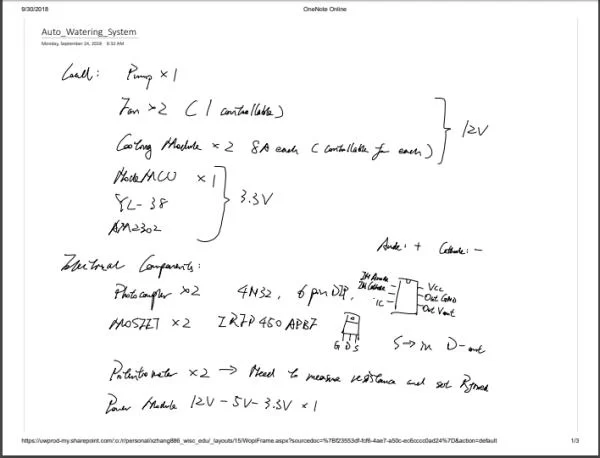 9/30/2018 OneNote Online
Auto_Watering_System
Monday, September 24, 2018 8:32 AM
Load: Pump × 1
Fan × 2 ( 1 controllable )
Cooling Module × 2 8A each ( controllable for each )
12V
NodeMCU × 1
YL-38
AM2302
3.3V
Anode: + Cathode: -
Electrical Components:
Photocoupler × 2 4N32, 6 pin DIP,
IN Anode
IN Cathode
IC
Vcc
Out GND
Out Vout
MOSFET × 2
G D S
S → in D-out
Potentiometer × 2 → Need to measure resistance and set
Power Module 12V - 5V - 3.3V × 1
https://uwprod-my.sharepoint.com/:o:/r/personal/xzhang886_wisc_edu/_layouts/15/WopiFrame.aspx?sourcedoc=%7Bf23553df-fcf6-4ae7-a50c-ec6cccc0ad24%7D&action=default 1/3